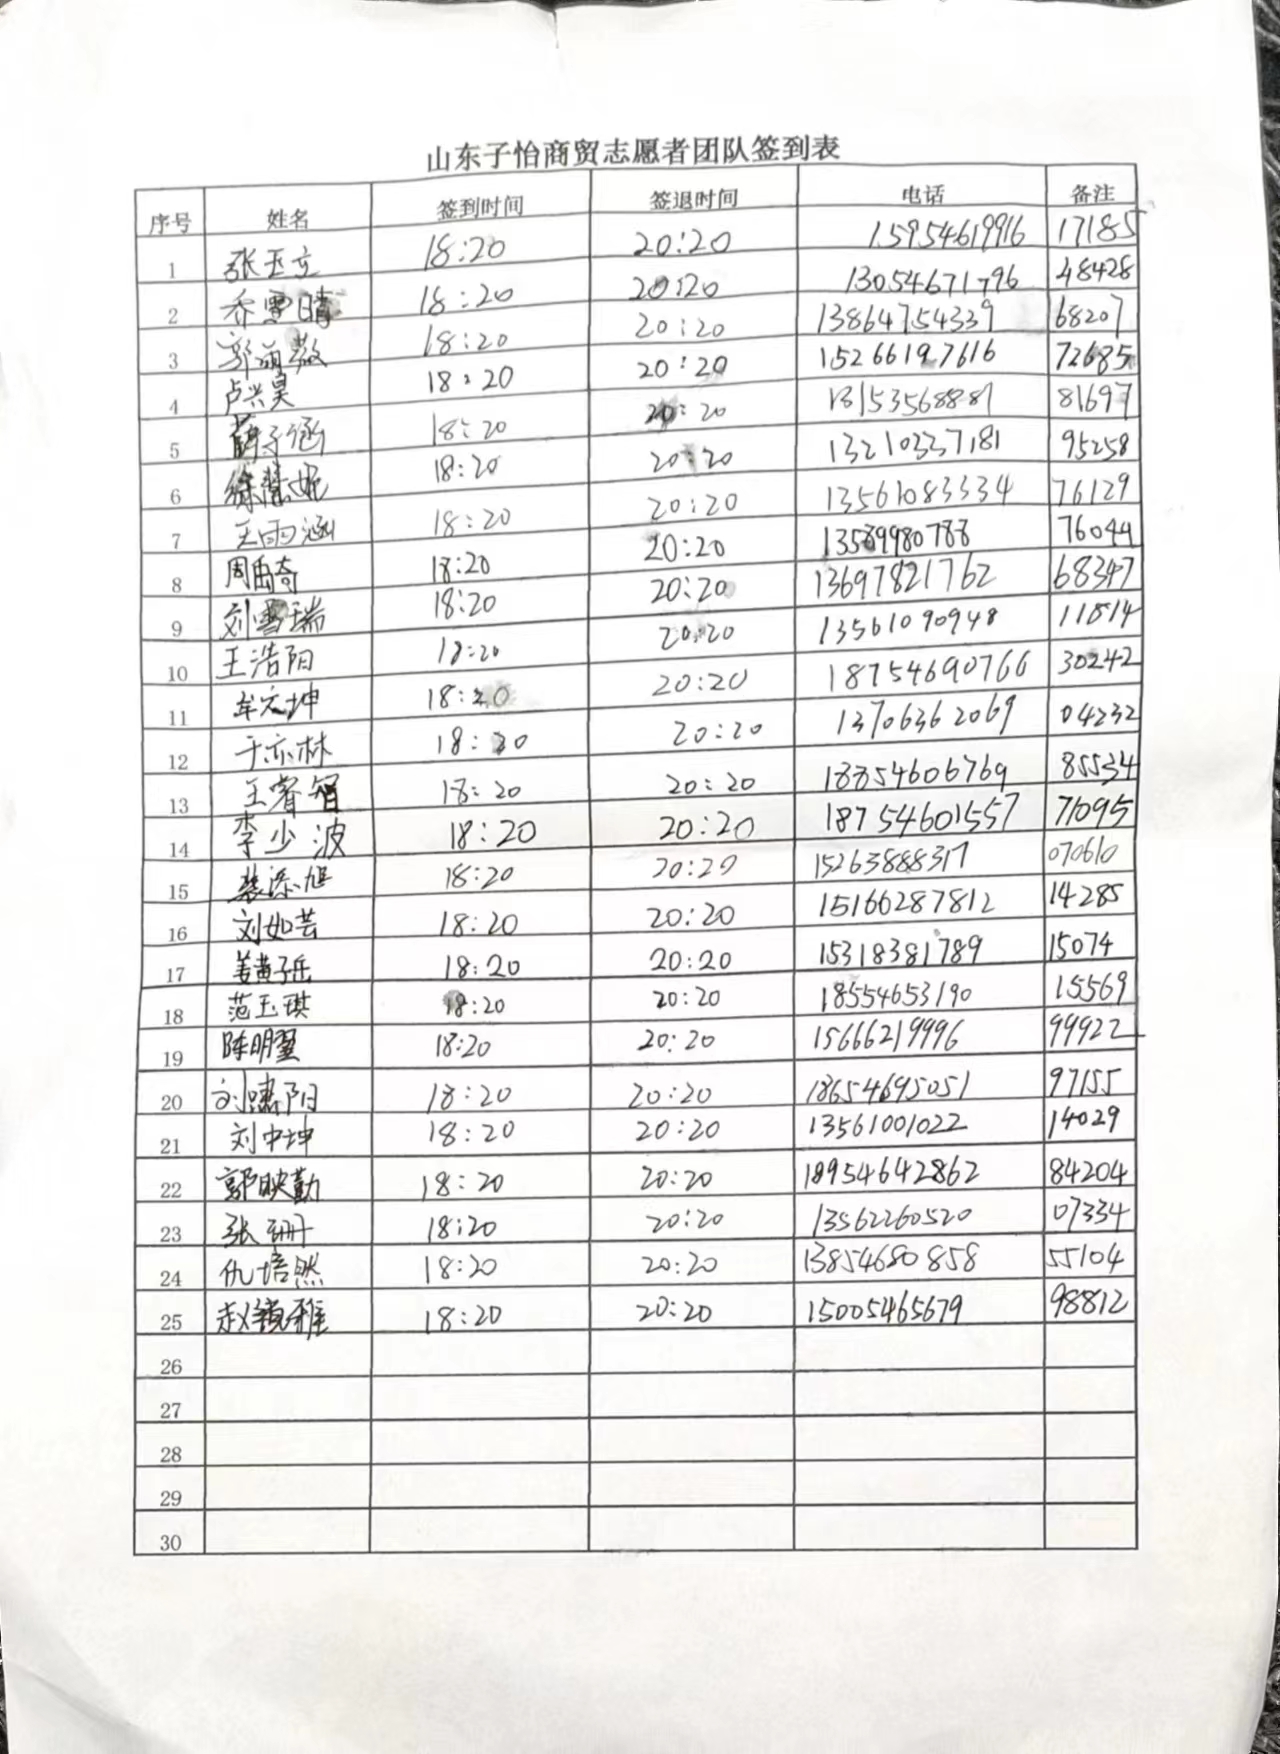 山东子怡商贸志愿者团队签到表
序号 姓名 签到时间 签退时间 电话 备注
1 张玉立 18:20 20:20 15954619916 17185
2 乔雪晴 18:20 20:20 13054671796 48428
3 郭 18:20 20:20 13864754339 68207
4 卢兴昊 18:20 20:20 15266197616 72685
5 薛子涵 18:20 20:20 13153568881 81697
6 徐慧妮 18:20 20:20 13210337181 95258
7 王雨涵 18:20 20:20 13561083334 76129
8 周雨奇 18:20 20:20 13589980788 76044
9 刘雪瑞 18:20 20:20 13697821762 68347
10 王浩阳 18:20 20:20 13561090948 11814
11 牟文坤 18:20 20:20 18754690766 30242
12 于亦林 18:20 20:20 13706362069 04232
13 王睿智 18:20 20:20 18854606769 85534
14 李少波 18:20 20:20 18754601557 71095
15 裴添旭 18:20 20:20 15263888317 070610
16 刘如芸 18:20 20:20 15166287812 14285
17 姜黄子岳 18:20 20:20 15318381789 15074
18 范玉琪 18:20 20:20 18554653190 15569
19 陈明翼 18:20 20:20 15666219996 99922
20 刘啸阳 18:20 20:20 18654695051 97155
21 刘中坤 18:20 20:20 13561001022 14029
22 郭映勤 18:20 20:20 18954642862 84204
23 张珊 18:20 20:20 13562260520 07334
24 仇培然 18:20 20:20 13854680858 55104
25 赵镜雅 18:20 20:20 15005465679 98812
26
27
28
29
30